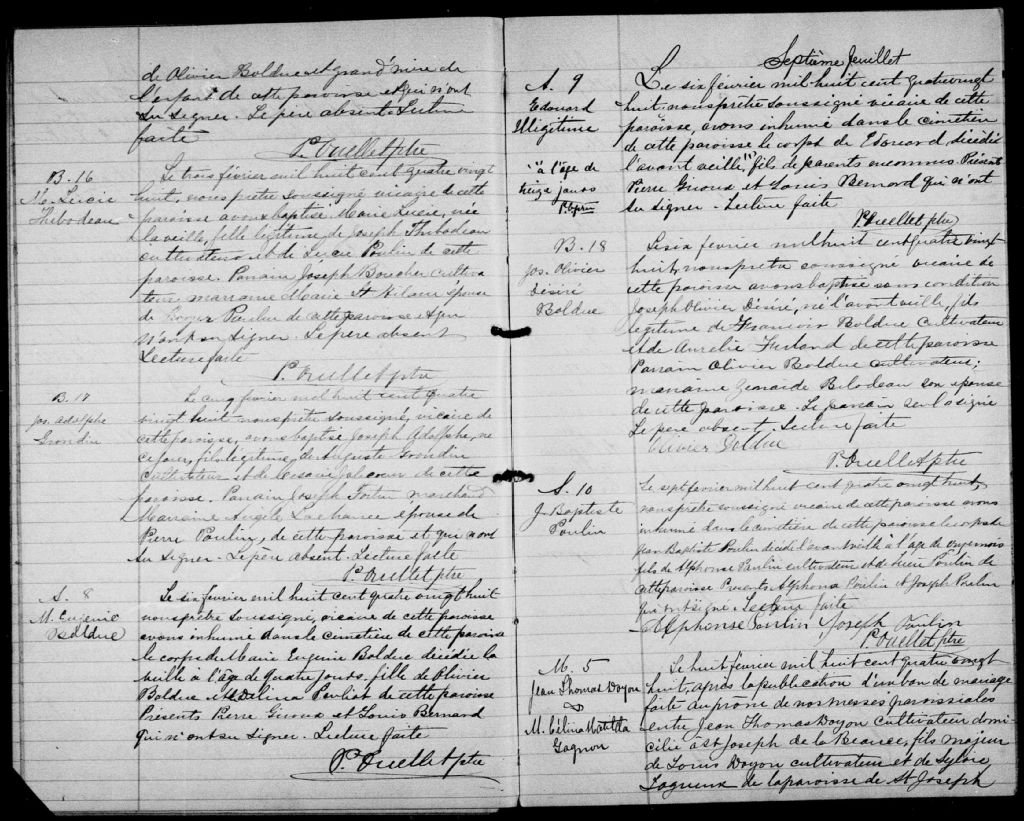 de Olivier Bolduc et grand'mère de
l'enfant de cette paroisse et qui n'ont
su signer. Le père absent. Lecture
faite
P. Ouellet ptre
B. 16
M. Lucie
Thibodeau
Le trois février mil huit cent quatre vingt
huit, nous prêtre soussigné vicaire de cette
paroisse avons baptisé Marie Lucie, née
la veille, fille légitime de Joseph Thibodeau
cultivateur et de Lucie Poulin de cette
paroisse. Parrain Joseph Boucher cultiva
teur marraine Marie St Hilaire épouse
de Poulin de cette paroisse et qui
n'ont su signer. Le père absent
Lecture faite
P. Ouellet ptre
B. 17
Jos. Adolphe
Grondin
Le cinq février mil huit cent quatre
vingt huit nous prêtre soussigné, vicaire de
cette paroisse, avons baptisé Joseph Adolphe, né
ce jour, fils légitime de Auguste Grondin
cultivateur et de de cette
paroisse. Parrain Joseph Fortin marchand
Marraine Angèle Lachance épouse de
Pierre Poulin, de cette paroisse et qui n'ont
su signer. Le père absent. Lecture faite
P. Ouellet ptre
S. 8
M. Eugénie
Bolduc
Le six février mil huit cent quatre vingt huit
nous prêtre soussigné, vicaire de cette paroisse
avons inhumé dans le cimetière de cette paroisse
le corps de Marie Eugénie Bolduc décédée la
veille à l'âge de quatre jours, fille de Olivier
Bolduc et Délina Pouliot de cette paroisse
Présents Pierre Giroux et Louis Bernard
qui n'ont su signer. Lecture faite
P. Ouellet ptre
Septième feuillet
S. 9
Edouard
Illégitime
"à l'âge de
treize jours
P.O. ptre
Le six février mil huit cent quatre vingt
huit nous prêtre soussigné vicaire de cette
paroisse, avons inhumé dans le cimetière
de cette paroisse le corps de Edouard décédé
l'avant veille," fils de parents inconnus. Présents
Pierre Giroux et Louis Bernard qui n'ont
su signer. Lecture faite
P. Ouellet ptre
B. 18
Jos. Olivier
Désiré
Bolduc
Le six février mil huit cent quatre vingt
huit, nous prêtre soussigné vicaire de
cette paroisse avons baptisé sous condition
Joseph Olivier Désiré, né l'avant veille, fils
légitime de François Bolduc cultivateur
et de Aurélie Furland de cette paroisse
Parrain Olivier Bolduc cultivateur;
marraine Zénaide Bilodeau son épouse
de cette paroisse. Le parrain seul a signé
Le père absent. Lecture faite
Olivier Bolduc
P. Ouellet ptre
S. 10
J. Baptiste
Poulin
Le sept février mil huit cent quatre vingt huit,
nous prêtre soussigné vicaire de cette paroisse avons
inhumé dans le cimetière de cette paroisse le corps de
Jean Baptiste Poulin décédé l'avant veille à l'âge de onze mois
fils de Alphonse Poulin cultivateur et de Poulin de
cette paroisse Présents Alphonse Poulin et Joseph Poulin
qui ont signé. Lecture faite
Alphonse Poulin Joseph Poulin
P. Ouellet ptre
M. 5
Jean Thomas Doyon
&
M. Célina Matilda
Gagnon
Le huit février mil huit cent quatre vingt
huit, après la publication d'un ban de mariage
faite au prône de nos messes paroissiales
entre Jean Thomas Doyon cultivateur domi
cilié à St Joseph de la Beauce, fils majeur
de Louis Doyon cultivateur et de Sylvie
Jacqueux de la paroisse de St Joseph